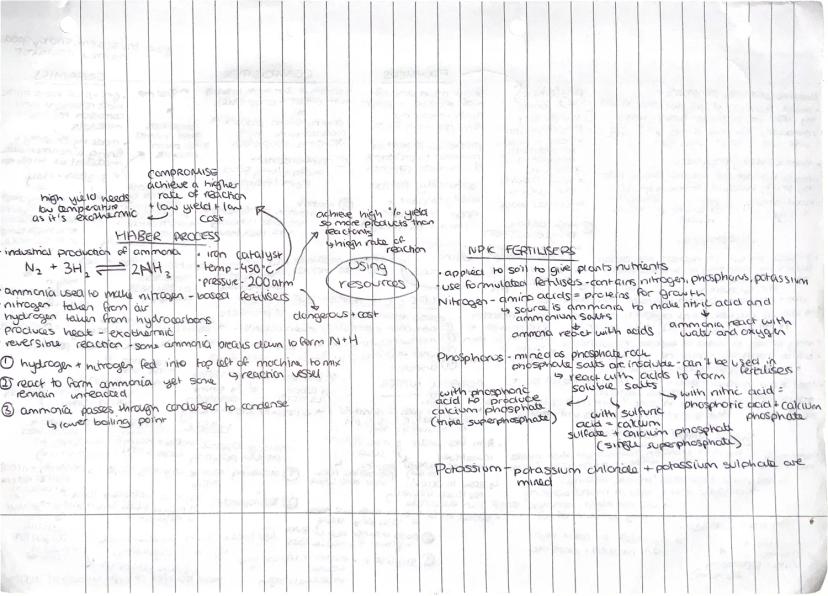 COMPROMISE
achieve a higher
rate of reaction
+ low yield + low
cost
high yield needs
low temperature
as it's exothermic
HABER PROCESS
· industrial production of ammona
N₂ + 3H₂ ⇌ 2NH₃
· iron catalyst
· temp - 450°C
· pressure - 200atm
achieve high % yield
so more products than
reactants
↳ high rate of
reaction
dangerous + cost
· ammonia used to make nitrogen - based fertilisers
· nitrogen taken from air
hydrogen taken from hydrocarbons
· produces heat - exothermic
· reversible reaction - some ammonia breaks down to form N+H
① hydrogen + nitrogen fed into top left of machine to mix
↳ reaction vessel
② react to form ammonia yet some
remain unreacted
③ ammonia passes through condenser to condense
↳ lower boiling point
Using
resources
NPK FERTILISERS
· applied to soil to give plants nutrients
· use formulated fertilisers - contains nitrogen, phosphorus, potassium
Nitrogen - amino acids = proteins for growth
↳ source is ammonia to make nitric acid and
ammonium salts
ammona react with acids
ammonia react with
water and oxygen
Phosphorus - mined as phosphate rock
phosphate salts are insoluble - can't be used in
fertilises
↳ react with acids to form
soluble salts
with phosphoric
acid to produce
calcium phosphate
(triple superphosphate)
with sulfuric
acid = calcium
sulfate + calcium phosphate
(single superphosphate)
with nitric acid =
phosphoric acid + calcium
phosphate
Potassium - potassium chloride + potassium sulphate are
mined